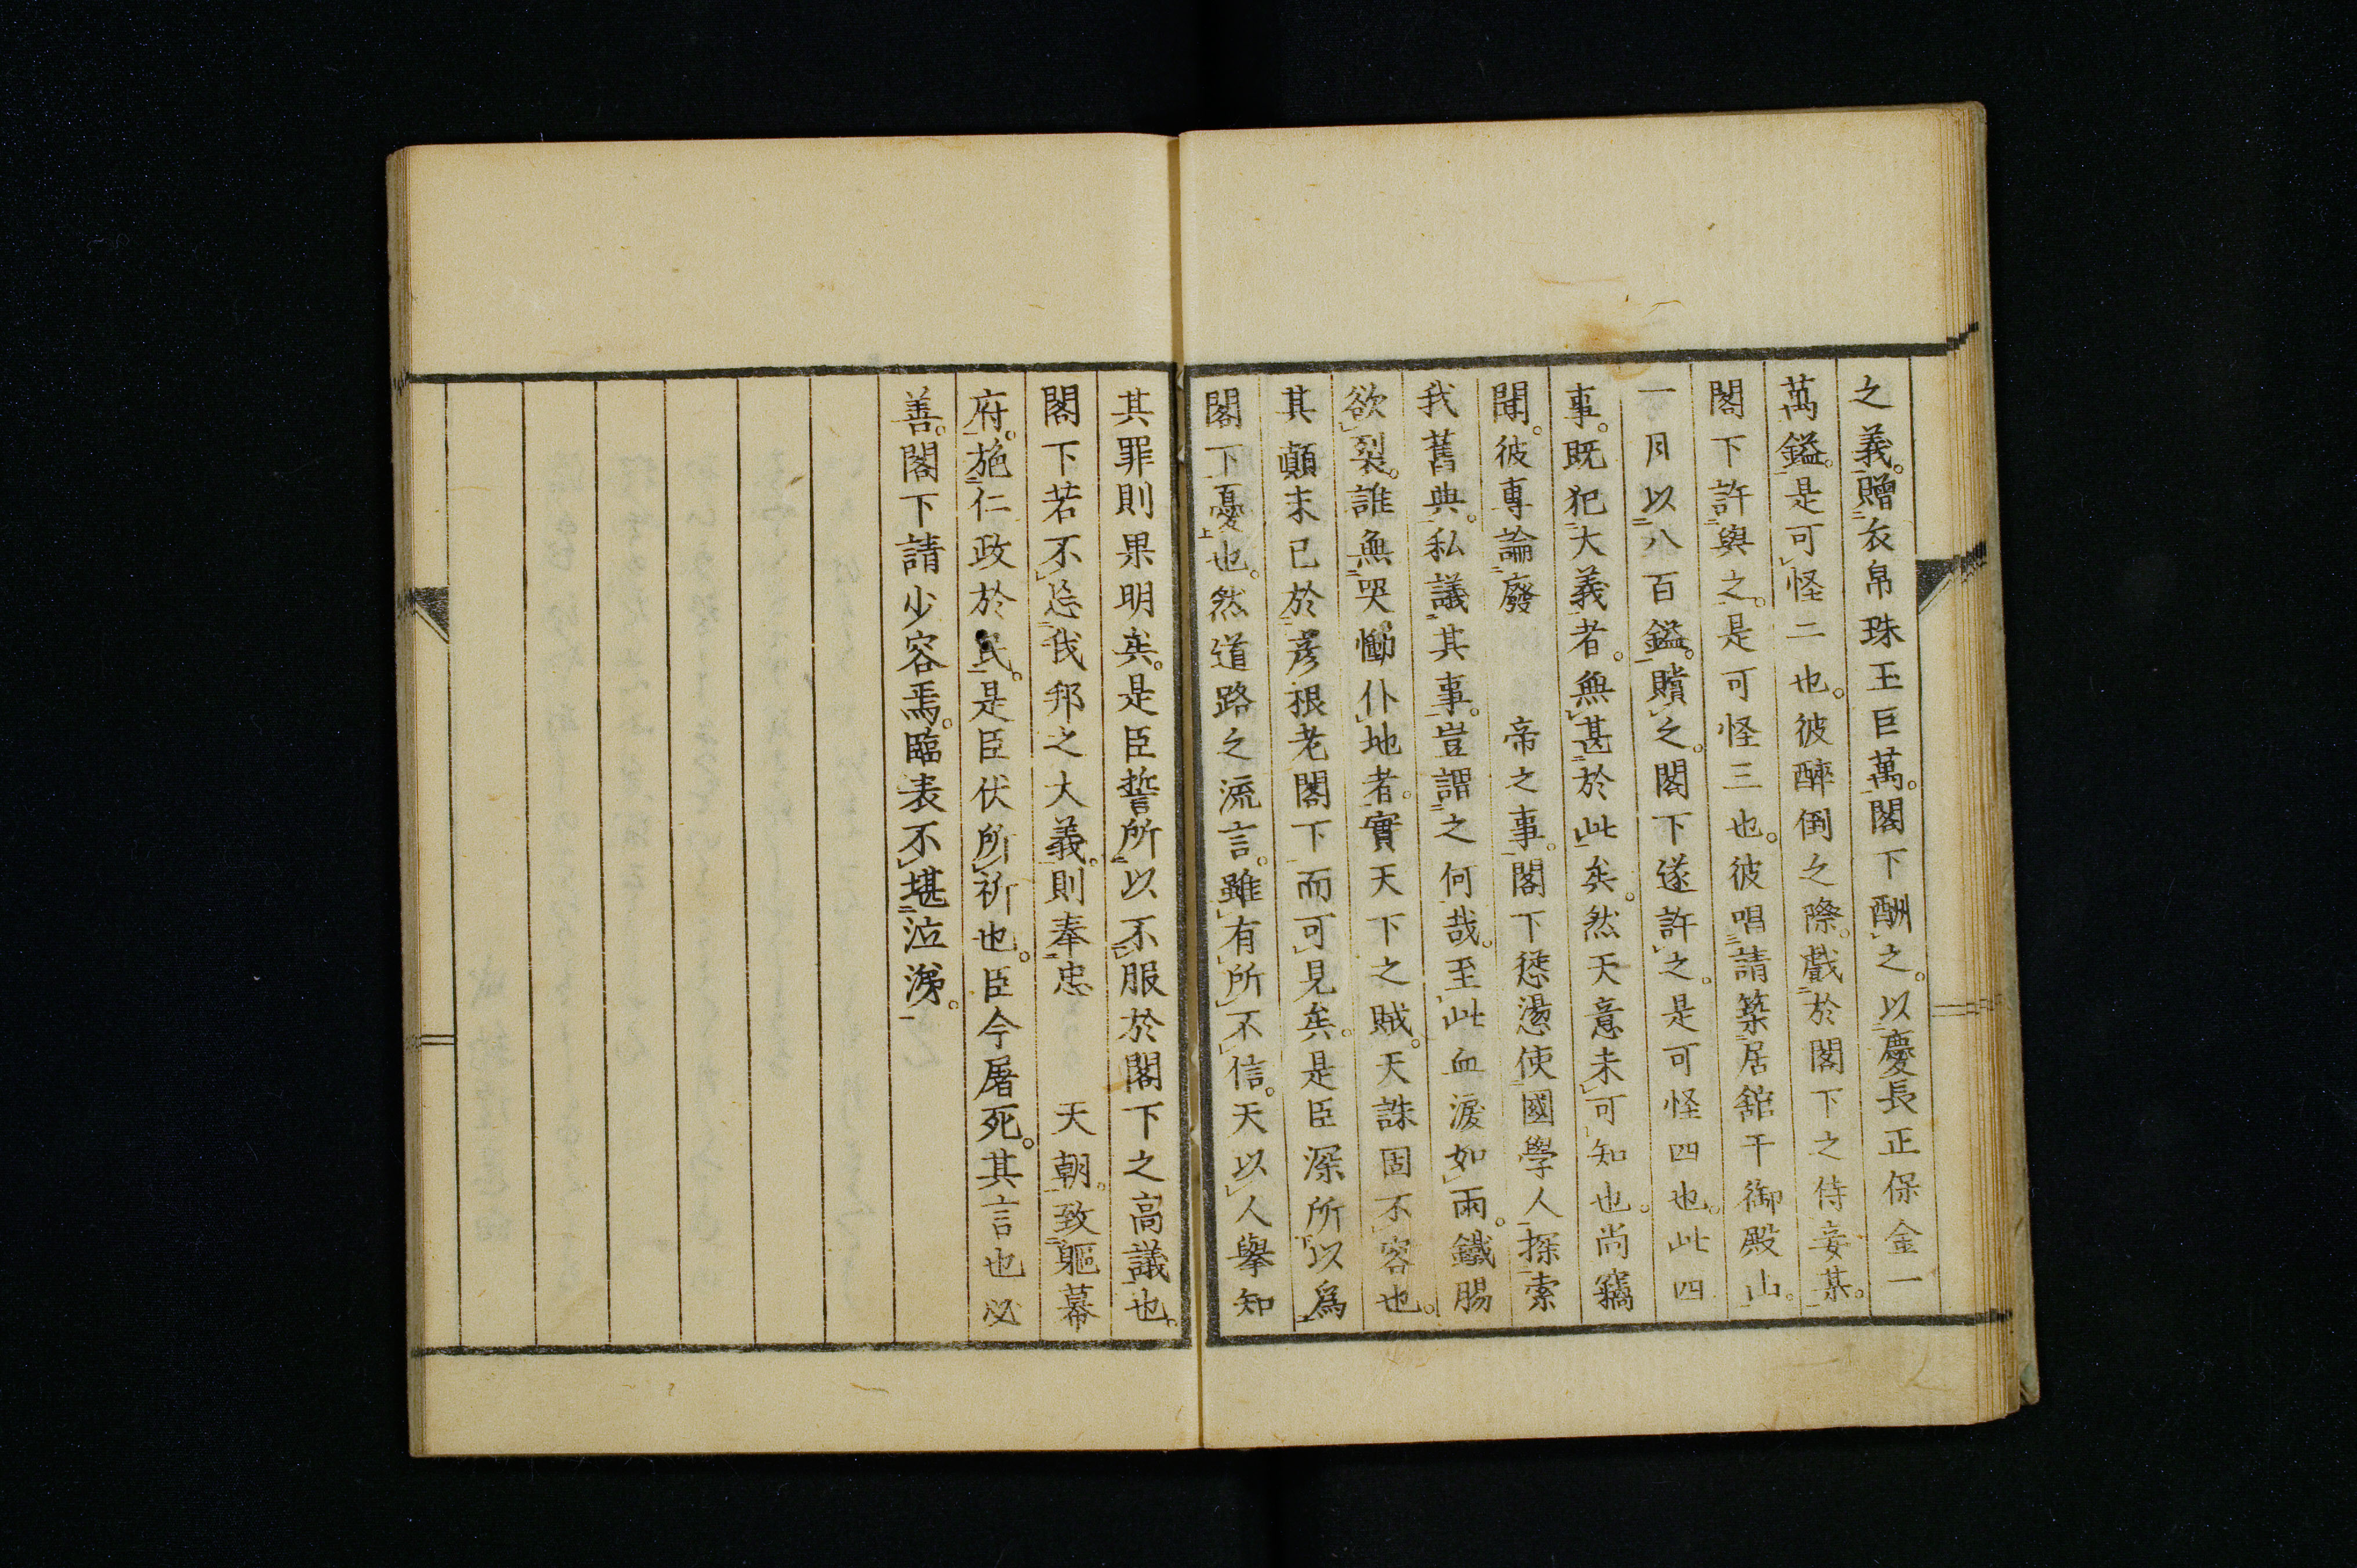 之義。贈衣帛珠玉巨萬。閣下酬之。以慶長正保金一
萬鎰。是可怪二也。彼醉倒之際。戲於閣下之侍妾某。
閣下許與之。是可怪三也。彼唱請築居舘干御殿山。
一月以八百鎰。贖之。閣下遂許之。是可怪四也。此四
事。既犯大義者。無甚於此矣。然天意未可知也。尚竊
聞。彼專論廢　帝之事。閣下慫慂使國學人探索
我舊典。私議其事。豈謂之何哉。至此血淚如雨。鐵腸
欲裂。誰無哭慟仆地者。實天下之賊。天誅固不容也。
其顛末已於彦根老閣下而可見矣。是臣深所以爲
閣下憂也。然道路之流言。雖有所不信。天以人擧知
其罪則果明矣。是臣誓所以不服於閣下之高議也。
閣下若不忘我邦之大義。則奉忠　天朝。致軀幕
府。施仁政於民。是臣伏所祈也。臣今屠死。其言也必
善。閣下請少容焉。臨表不堪泣涕。